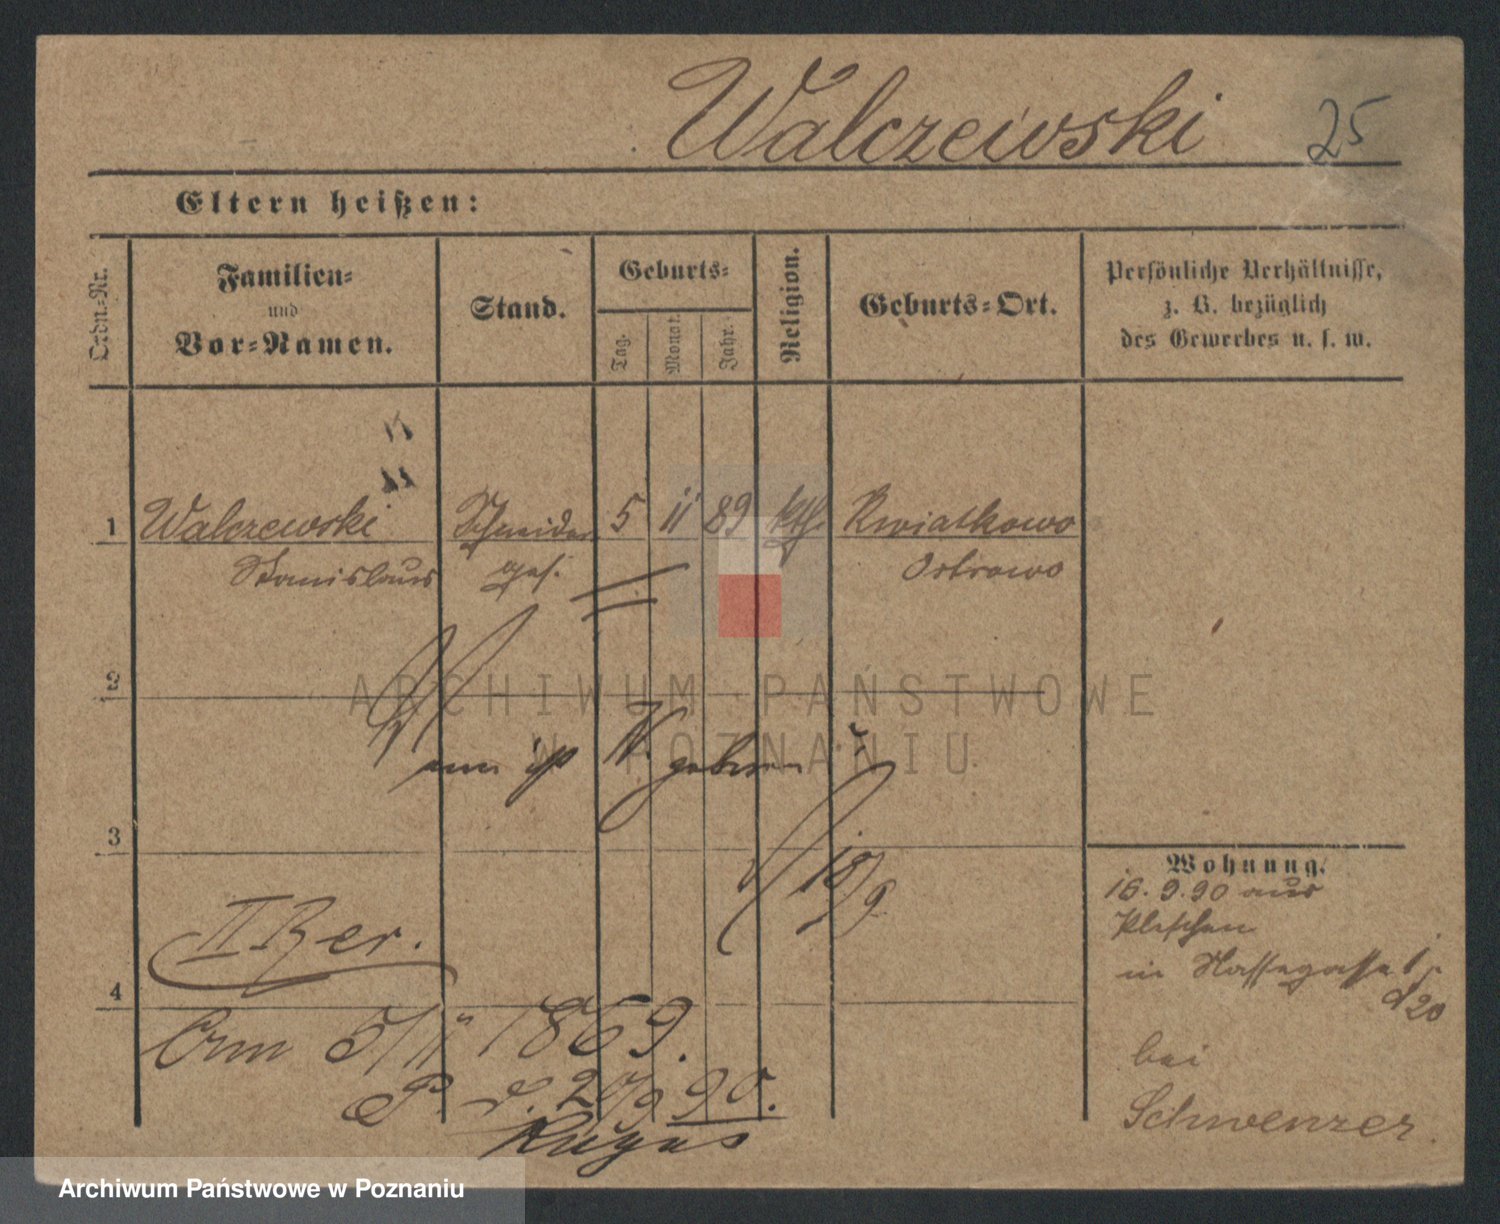 Walczewski 25
Eltern heißen:
Ordn.-Nr.
Familien-
und
Vor-Namen.
Stand.
Geburts-
Tag.
Monat.
Jahr.
Religion.
Geburts-Ort.
Persönliche Verhältnisse,
z. B. bezüglich
des Gewerbes u. s. w.
1 Walczewski Schneider 5 11 89 kth. Kwiatkowo
Stanislaus ges. Ostrowo
2
wann ist W. geboren?
3
18/9
Wohnung.
16.9.90 aus
Pleschen
in
II Rev.
4
am 5/11 1869.
P. d. 20/9 90.
bei
Schwenzer.
ARCHIWUM PAŃSTWOWE
W POZNANIU
Archiwum Państwowe w Poznaniu